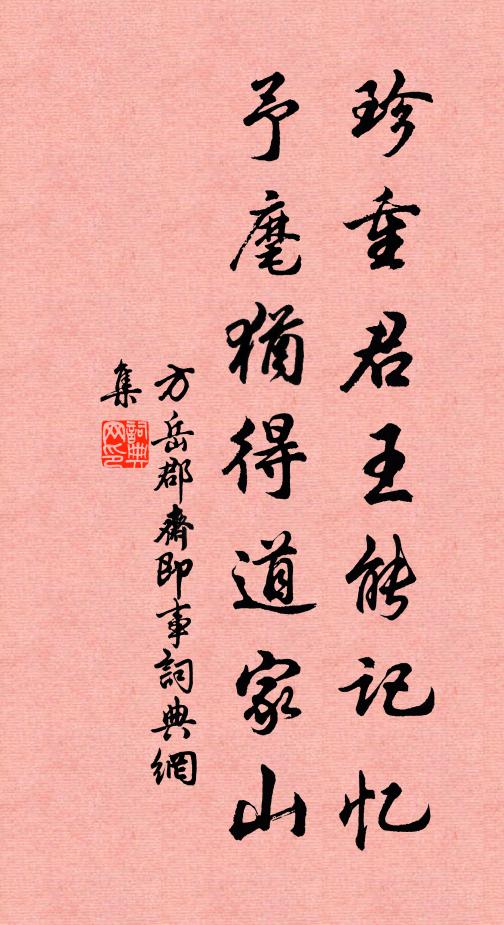 珍重君王能记忆
予麾犹得道家山
方岳郡斋即事詞典網
集
詞典
网印